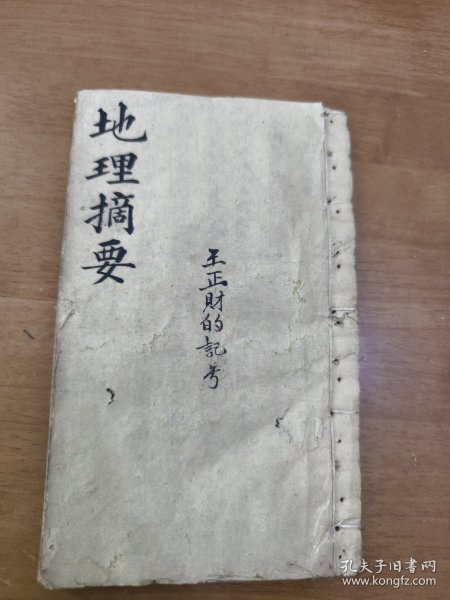 地理摘要
王正財的記号
孔夫子旧书网
www.kongfz.com